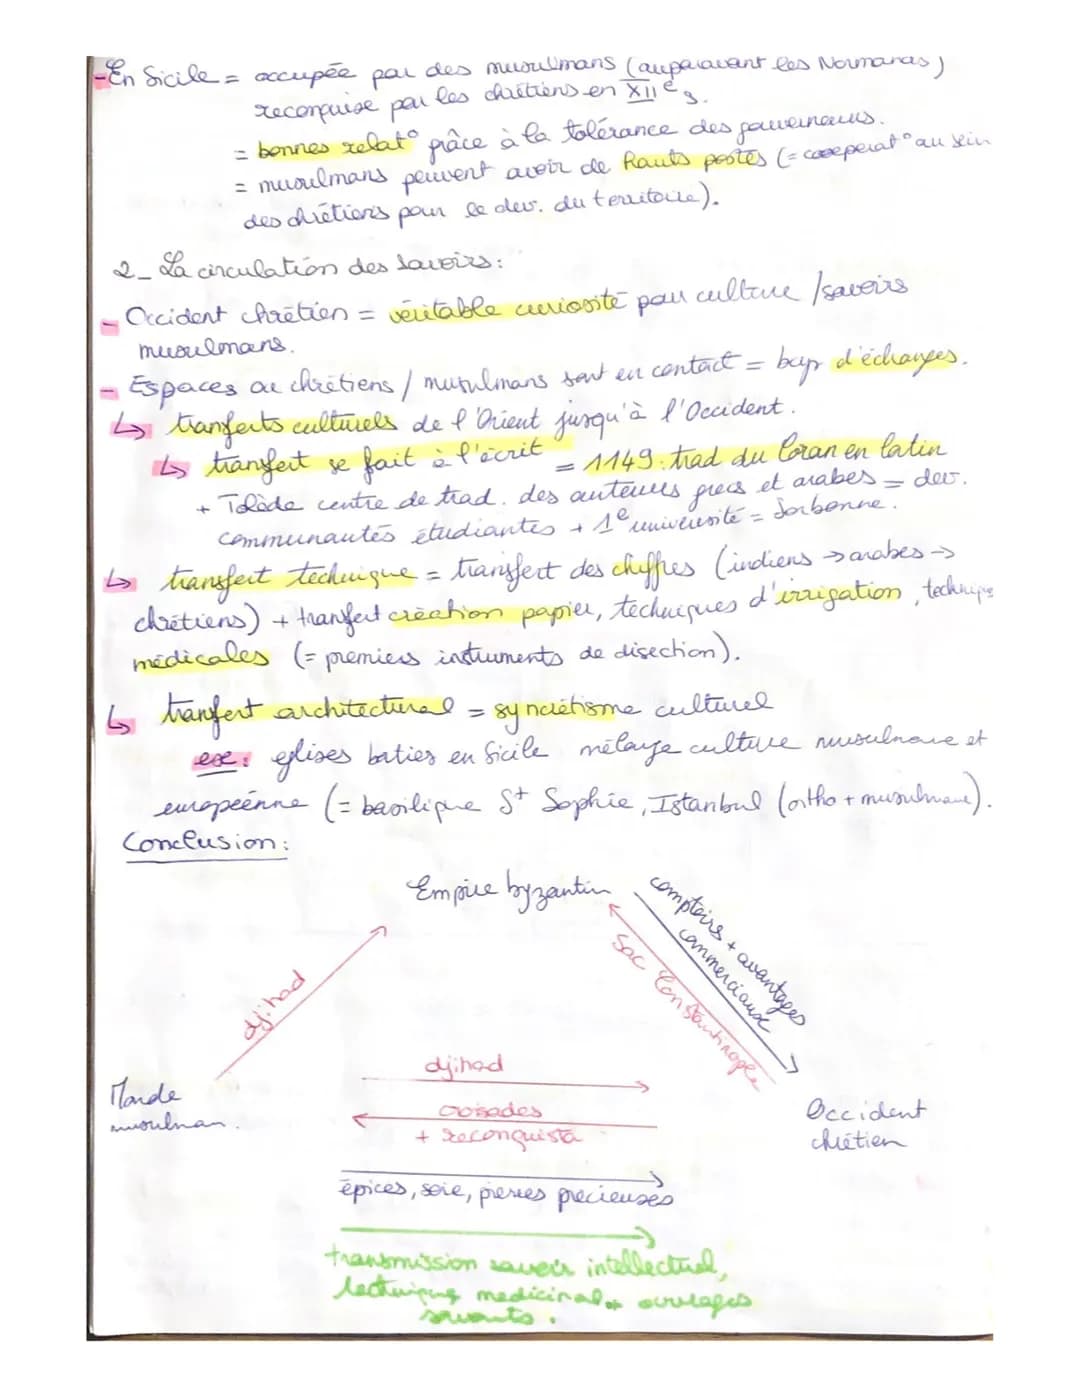 -En Sicile = occupée par des musulmans (auparavant les Normands)
reconquise par les chrétiens en XIIe s.
= bonnes relat° grâce à la tolérance des gouverneurs.
= musulmans peuvent avoir de hauts postes (= cooperat° au sein
des chrétiens pour le dev. du territoire).
2_ La circulation des savoirs:
- Occident chrétien = véritable curiosité pour culture / savoirs
musulmans.
- Espaces où chrétiens / musulmans sont en contact = bcp d'échanges.
↳ tranferts culturels de l'Orient jusqu'à l'Occident.
↳ transfert se fait à l'écrit = 1149: trad du Coran en latin
+ Tolède centre de trad. des auteurs grecs et arabes = dev.
communautés étudiantes + 1e université = Sorbonne.
↳ transfert technique = transfert des chiffres (indiens → arabes →
chrétiens) + transfert création papier, techniques d'irrigation, technique
médicales (= premiers instruments de disection).
↳ tranfert architectural = syncrétisme culturel
ex: églises baties en Sicile mélange culture musulmane et
européenne (= basilique St Sophie, Istanbul (ortho + musulmane).
Conclusion:
Empire byzantin
comptoirs + avantages
commerciaux
Sac Constantinople
djihad
djihad
Monde
musulman.
croisades
+ reconquista
Occident
chrétien
épices, soie, pierres précieuses
transmission savoir intellectuel,
technique medicinal, ouvrages
savants.